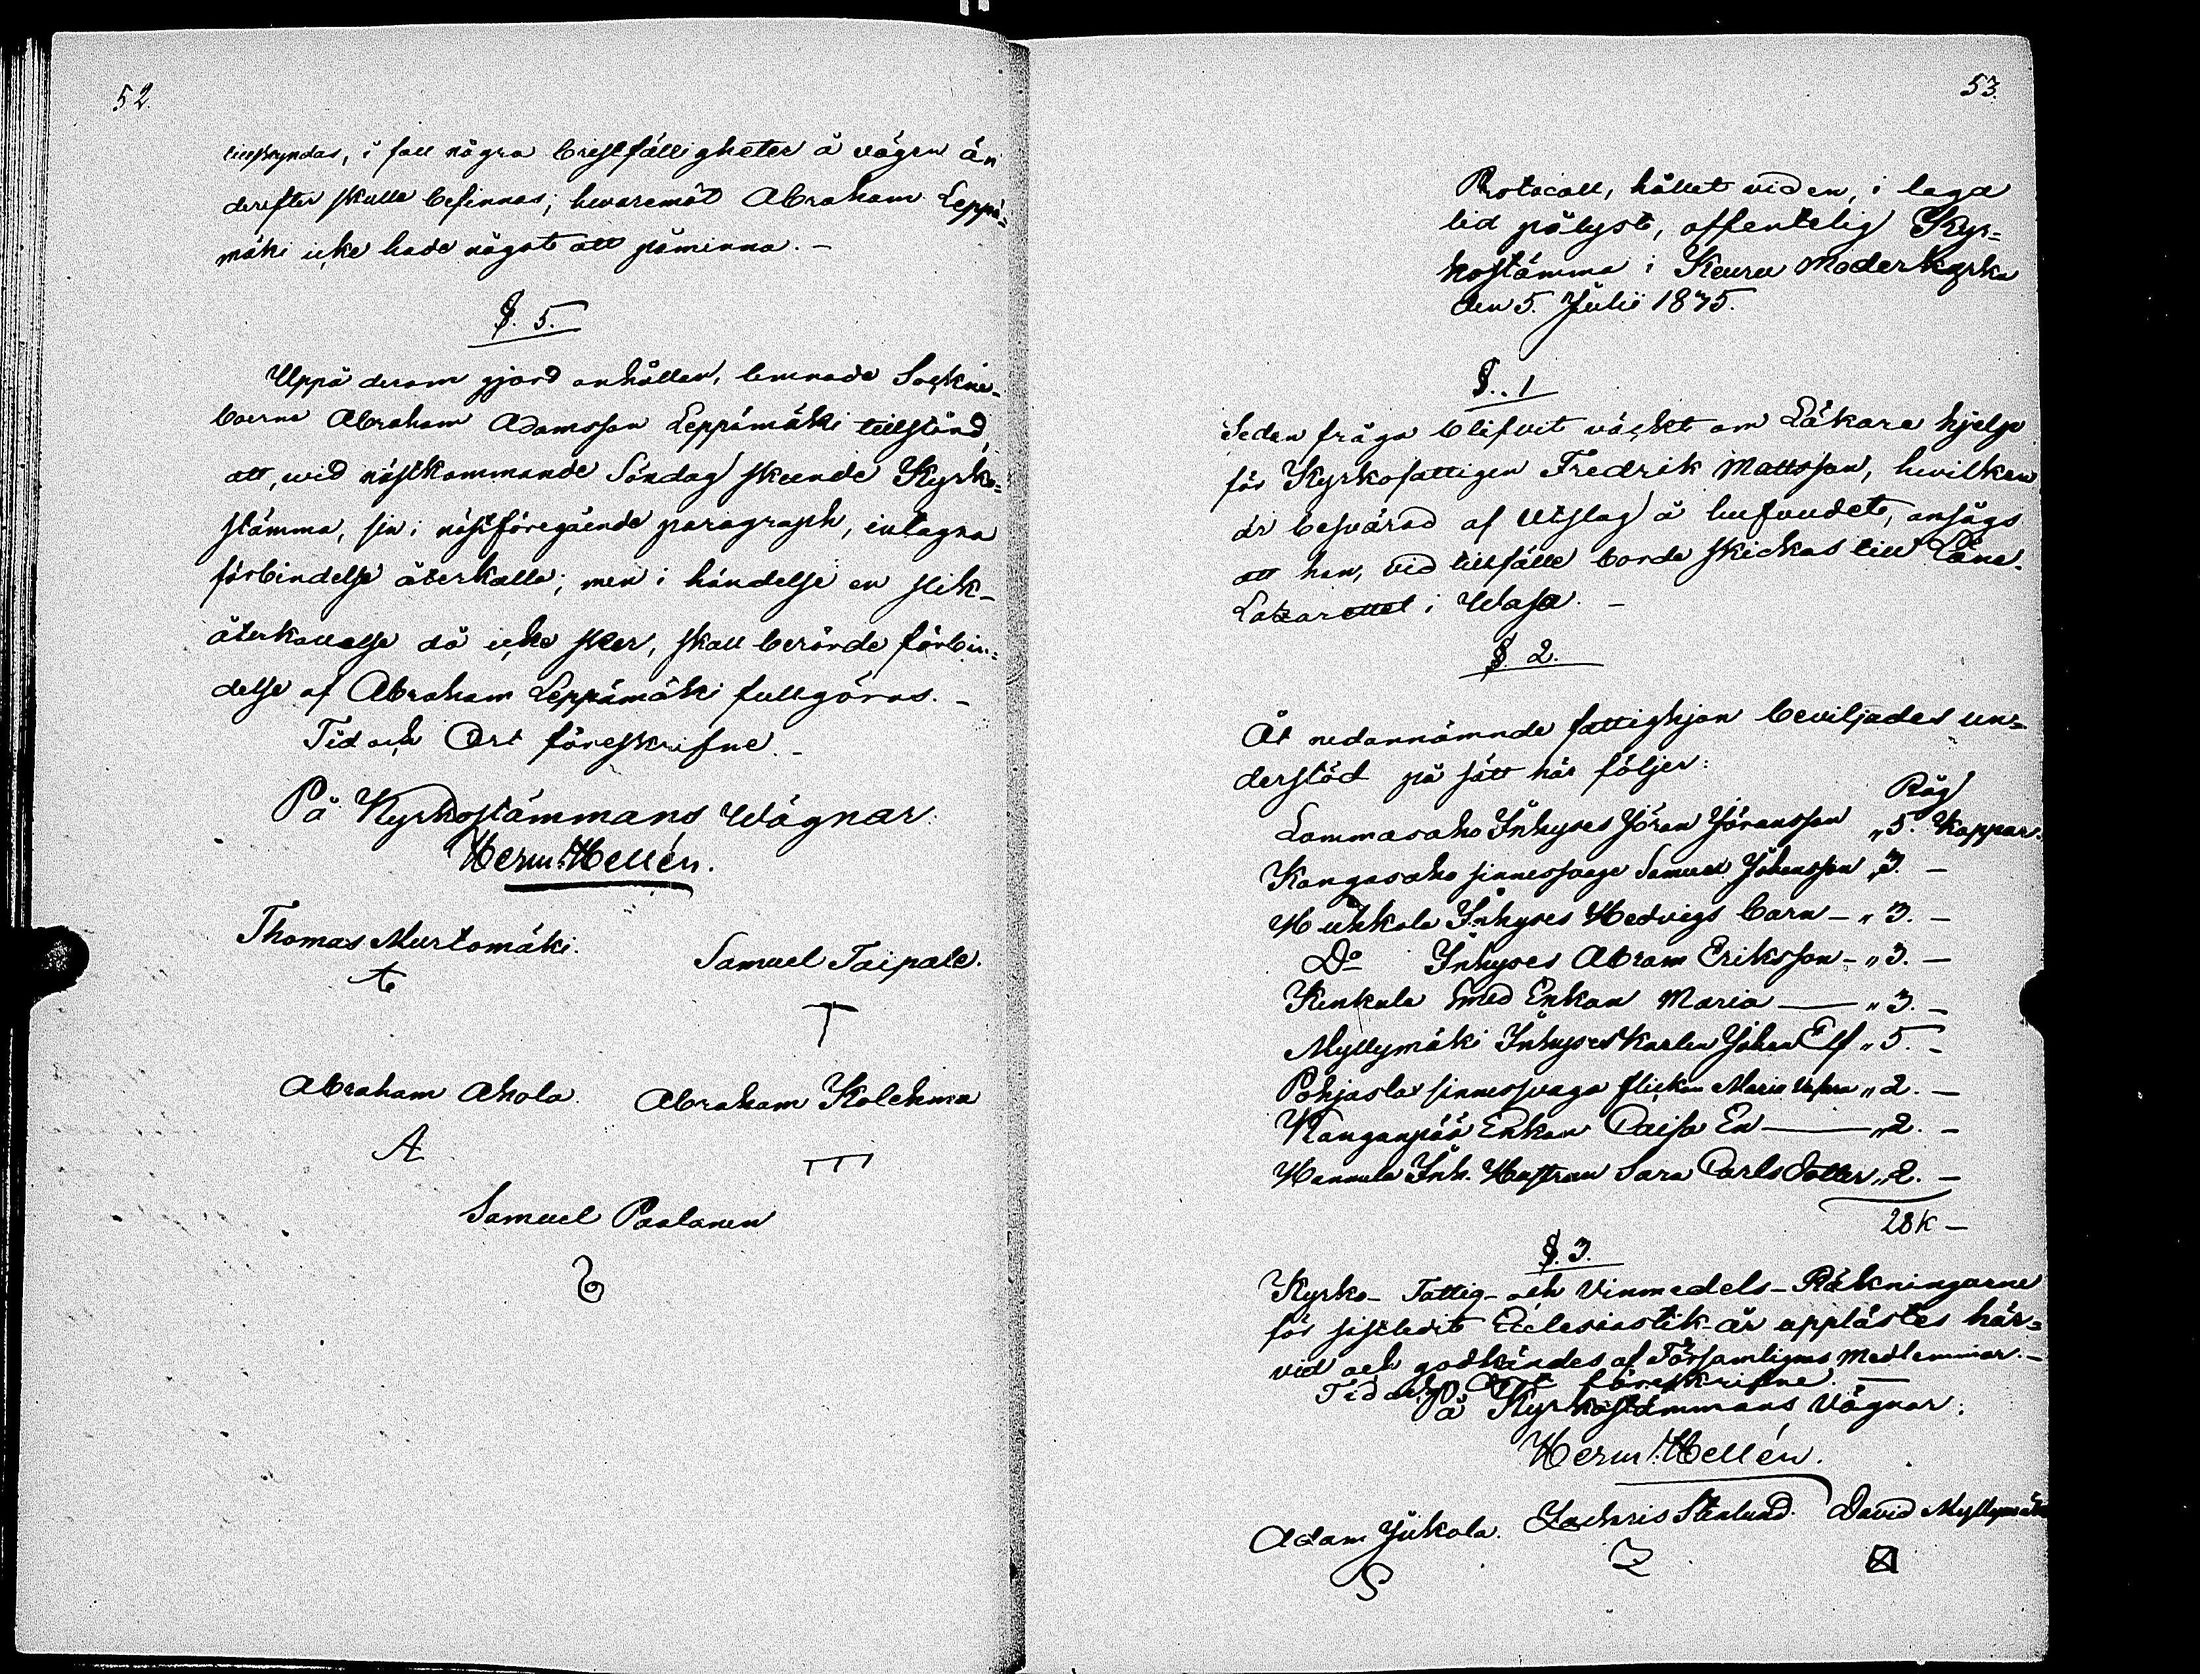 52.
tillskyndas, i fall några bristfälligheter å vägen än
derefter skulle befinnas; hvaremot Abraham Leppä=
mäki icke hade något att påminna. -
§. 5.
Uppå derom gjord anhållan, lemnade Sockne-
boerne Abraham Adamsson Leppämäki tillstånd,
att, wid nästkommande Söndag skeende Kyrko=
stämma, sin i nästföregående paragraph, intagna
förbindelse återkalla; men i händelse en slik-
återkallelse då icke sker, skall berörde förbin=
delse af Abraham Leppämäki fullgöras. -
Tid och Ort föreskrifne. -
På Kyrkostämmans Wägnar:
Herm: Hellén.
Thomas Murtomäki.
Samuel Taipale.
T
Abraham Ahola.
Abraham Kolehma
A
Samuel Paalanen
53.
Protocoll, hållet vid en, i laga
tid pålyst, offentelig Kyr=
kostämma i Keuru Moderkyrka
den 5. Julii 1845.
§. 1
Sedan fråga blifvit väckt om Läkare hjelp
för Kyrkofattigen Fredrik Mattsson, hvilken
är besvärad af Utslag å hufvudet, ansågs
att han, vid tillfälle borde skickas till Läns-
Lazarettet i Wasa. -
§. 2.
Åt nedannämnde fattighjon beviljades un=
derstöd på sätt här följer:
Råg
Lammasaho Inhyses Jöran Jöransson „ 5. Kappar.
Kangasaho sinnessvage Samuel Johansson „ 3. -
Huhkola Inhyses Hedvigs barn - „ 3. -
Do Inhyses Abram Eriksson - „ 3. -
Kinkula Smed Enkan Maria - „ 3. -
Myllymäki Inhyses Karlen Johan Elf „ 5. -
Pohjasla sinnessvaga flickan Maria „ 2. -
Kanganpää Enkan Caisa En - „ 2. -
Hannula Inh. Hustrun Sara Carls Dotter „ 2. -
28 K -
§. 3.
Kyrko- Fattig- och Vinmedels-Räkningarne
för sistledit Ecclesiastik år upplästes här=
vid och godkändes af Församligens Medlemmar. -
Tid och Ort föreskrifne. -
På Kyrkostämmans Vägnar:
Herm: Hellén.
Adam Jukola. Zachris Stenlund. David Myllymäki
S Z